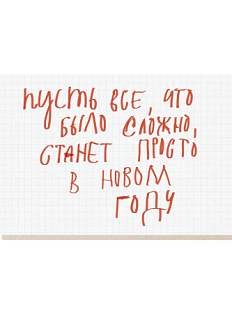 пусть все, что
было сложно,
станет просто
в новом
году